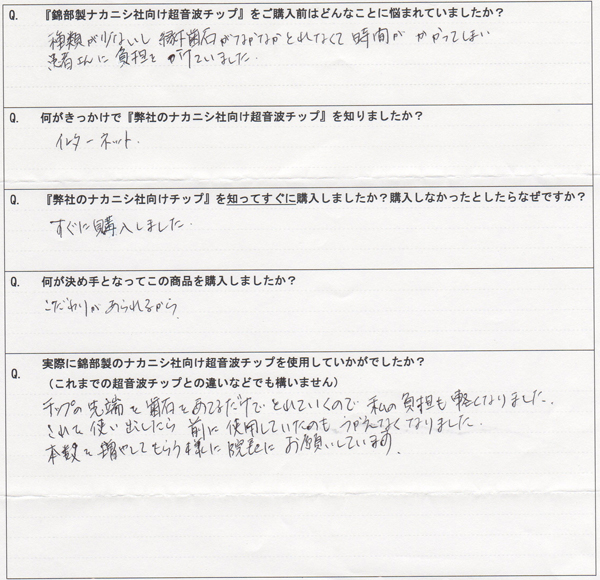 Q. 『錦部製ナカニシ社向け超音波チップ』をご購入前はどんなことに悩まれていましたか？
種類が少ないし 縁下歯石がなかなかとれなくて 時間が かかってしまい
患者さんに 負担を かけていました.
Q. 何がきっかけで『弊社のナカニシ社向け超音波チップ』を知りましたか？
インターネット.
Q. 『弊社のナカニシ社向けチップ』を知ってすぐに購入しましたか？購入しなかったとしたらなぜですか？
すぐに購入しました.
Q. 何が決め手となってこの商品を購入しましたか？
こだわりが あられるから.
Q. 実際に錦部製のナカニシ社向け超音波チップを使用していかがでしたか？
（これまでの超音波チップとの違いなどでも構いません）
チップの先端を歯石をあてるだけでとれていくので 私の負担も軽くなりました.
これを使い出したら 前に使用していたのも つかえなくなりました.
本数を増やしてもらう様に院長に お願いしています.